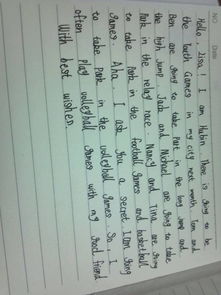 NO.
Date
Hello, Lisa! I am Hubin. There is going to be
the tooth Games in my city next month. Tom and
Ben are going to take part in the long jump and
the high jump. Jack and Michael are going to take
Park in the relay race. Nancy and Tina are going
to take Park in the football games and basketball
games. Aha, I ask you a secret. I am going
to take park in the volleyball games. So, I
often play volleyball games with my good friend
With best wishes.